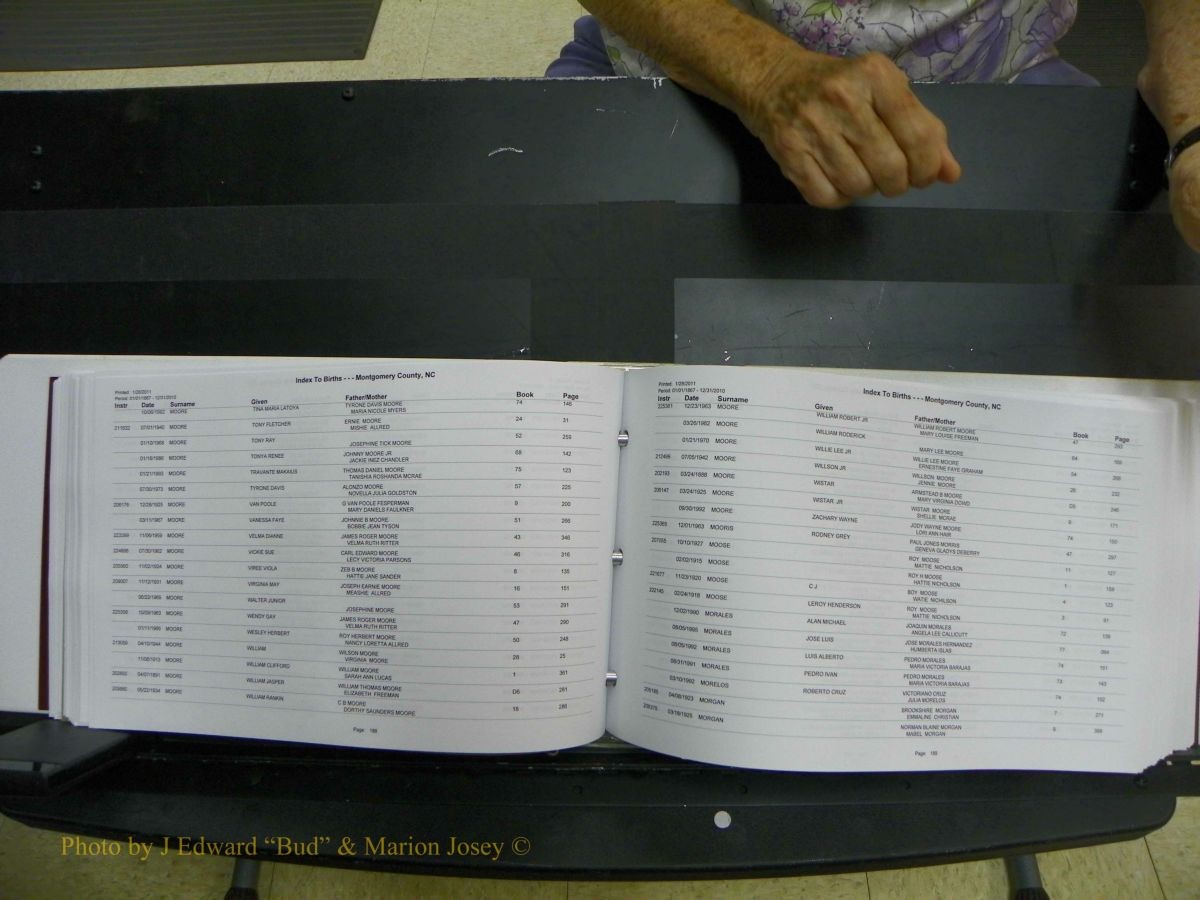 Index To Births - - - Montgomery County, NC
Printed: 1/28/2011
Period: 01/01/1867 - 12/31/2010
Instr Date Surname Given Father/Mother Book Page
10/06/1982 MOORE TINA MARIA LATOYA TYRONE DAVIS MOORE 74 146
MARIA NICOLE MYERS
07/01/1940 MOORE TONY FLETCHER ERNIE MOORE 24 31
MISHIE ALLRED
MOORE TONY RAY 52 259
JOSEPHINE TICK MOORE
MOORE TONYA RENEE JOHNNY MOORE JR 68 142
JACKIE INEZ CHANDLER
MOORE TRAVANTE MAKAIUS THOMAS DANIEL MOORE 75 123
TANISHIA ROSHANDA MCRAE
MOORE TYRONE DAVIS ALONZO MOORE 57 225
NOVELLA JULIA GOLDSTON
MOORE VAN POOLE G VAN POOLE FESPERMAN 9 200
MARY DANIELS FAULKNER
MOORE VANESSA FAYE JOHNNIE B MOORE 51 266
BOBBIE JEAN TYSON
MOORE VELMA DIANNE JAMES ROGER MOORE 43 346
VELMA RUTH RITTER
MOORE VICKIE SUE CARL EDWARD MOORE 46 316
LECY VICTORIA PARSONS
MOORE VIREE VIOLA ZEB B MOORE 8 135
HATTIE JANE SANDER
MOORE VIRGINIA MAY JOSEPH EARNIE MOORE 16 151
MEASHIE ALLRED
MOORE WALTER JUNIOR 53 291
JOSEPHINE MOORE
MOORE WENDY GAY JAMES ROGER MOORE 47 290
VELMA RUTH RITTER
MOORE WESLEY HERBERT ROY HERBERT MOORE 50 248
NANCY LORETTA ALLRED
MOORE WILLIAM WILSON MOORE 28 25
VIRGINIA MOORE
MOORE WILLIAM CLIFFORD WILLIAM MOORE 1 361
SARAH ANN LUCAS
MOORE WILLIAM JASPER WILLIAM THOMAS MOORE D6 261
ELIZABETH FREEMAN
05/22/1934 MOORE WILLIAM RANKIN C B MOORE 18 286
DORTHY SAUNDERS MOORE
Page: 188
Index To Births - - - Montgomery County, NC
Printed: 1/28/2011
Period: 01/01/1867 - 12/31/2010
Instr Date Surname Given Father/Mother Book Page
225381 12/23/1963 MOORE WILLIAM ROBERT JR WILLIAM ROBERT MOORE 47
MARY LOUISE FREEMAN
03/26/1982 MOORE WILLIAM RODERICK 64
MARY LEE MOORE
01/21/1970 MOORE WILLIE LEE JR WILLIE LEE MOORE 54
ERNESTINE FAYE GRAHAM
212499 07/05/1942 MOORE WILLSON JR WILLSON MOORE 26 232
JENNIE MOORE
202193 03/24/1888 MOORE WISTAR ARMSTEAD B MOORE
MARY VIRGINIA DOWD
206147 03/24/1925 MOORE WISTAR JR WISTAR MOORE 171
SHELLIE MCRAE
09/30/1992 MOORE ZACHARY WAYNE JODY WAYNE MOORE 74
LORI ANN HAIR
225365 12/01/1963 MOORIS RODNEY GREY PAUL JONES MORRIS 47 297
GENEVA GLADYS DEBERRY
10/10/1927 MOOSE ROY MOOSE 11 127
MATTIE NICHOLSON
02/02/1915 MOOSE ROY H MOOSE
HATTIE NICHOLSON
221677 11/23/1920 MOOSE C J BOY MOOSE 4 123
WATIE NICHILSON
222145 02/24/1918 MOOSE LEROY HENDERSON ROY MOOSE 3 91
MATTIE NICHOLSON
12/02/1990 MORALES ALAN MICHAEL JOAQUIN MORALES 72 139
ANGELA LEE CALLICUTT
MORALES JOSE LUIS JOSE MORALES HERNANDEZ 77
HUMBERTA ISLAS
MORALES LUIS ALBERTO PEDRO MORALES 74 151
MARIA VICTORIA BARAJAS
08/31/1991 MORALES PEDRO IVAN PEDRO MORALES 73 143
MARIA VICTORIA BARAJAS
03/10/1992 MORELOS ROBERTO CRUZ VICTORIANO CRUZ 74 152
JULIA MORELOS
MORGAN BROOKSHIRE MORGAN 7 271
EMMALINE CHRISTIAN
MORGAN NORMAN BLAINE MORGAN
MABEL MORGAN
Page: 189
Photo by J Edward “Bud” & Marion Josey ©